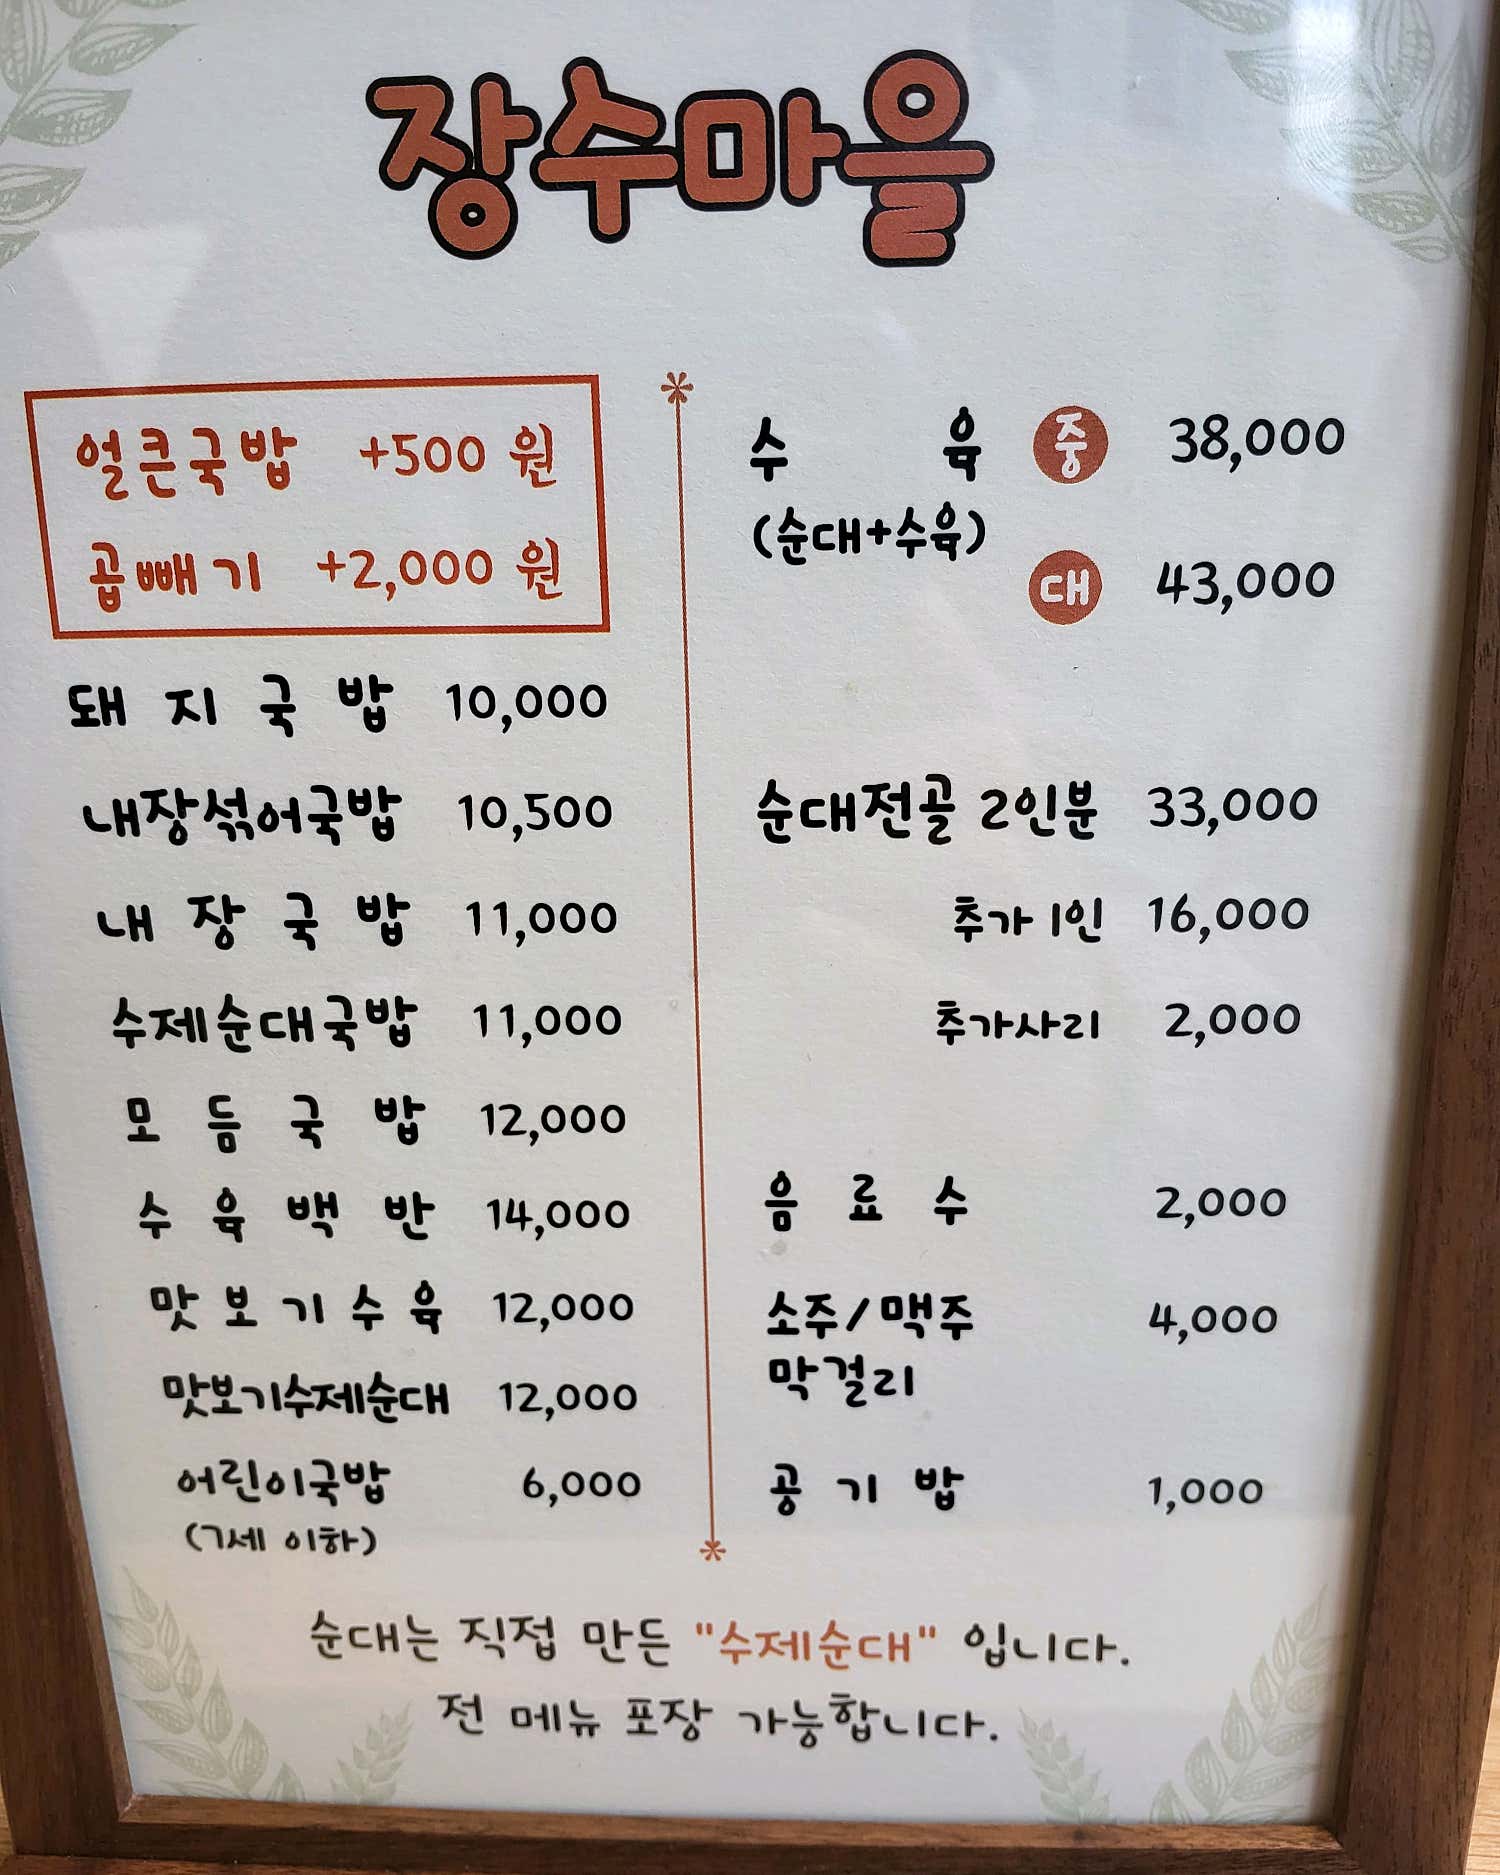 장수마을
얼큰국밥 +500 원
곱빼기 +2,000 원
돼지국밥 10,000
내장섞어국밥 10,500
내장국밥 11,000
수제순대국밥 11,000
모듬국밥 12,000
수육백반 14,000
맛보기수육 12,000
맛보기수제순대 12,000
어린이국밥 6,000
(7세 이하)
수육 중 38,000
(순대+수육)
대 43,000
순대전골 2인분 33,000
추가 1인 16,000
추가사리 2,000
음료수 2,000
소주/맥주 4,000
막걸리
공기밥 1,000
순대는 직접 만든 "수제순대" 입니다.
전 메뉴 포장 가능합니다.